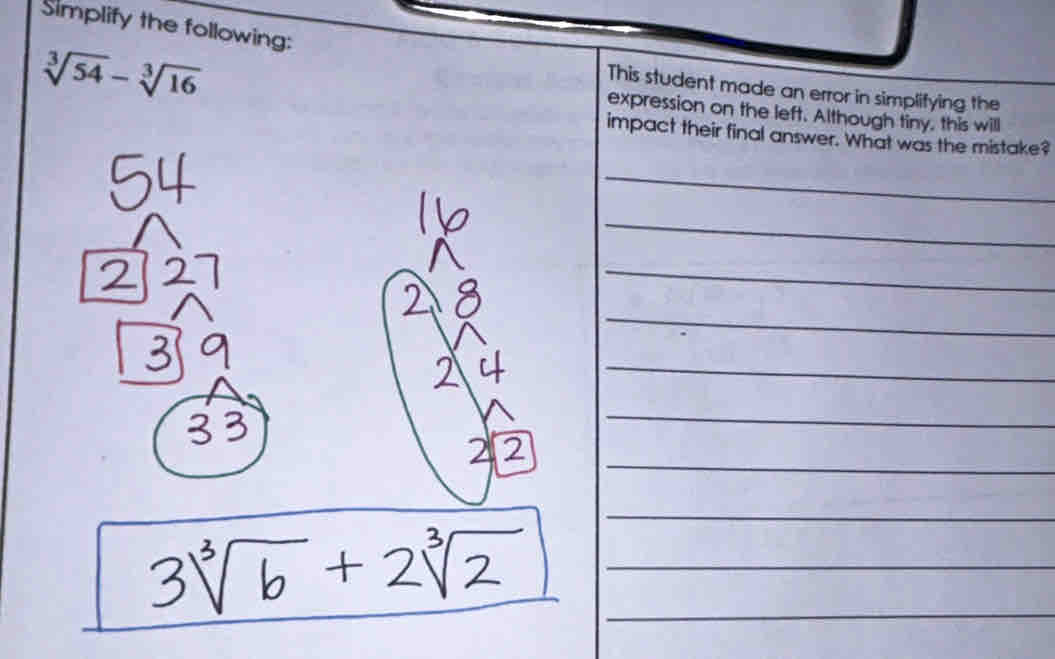 Simplify the following:
∛54 − ∛16
This student made an error in simplifying the
expression on the left. Although tiny, this will
impact their final answer. What was the mistake?
54
2 27
3 9
3 3
16
2 8
2 4
2 2
3∛6 + 2∛2